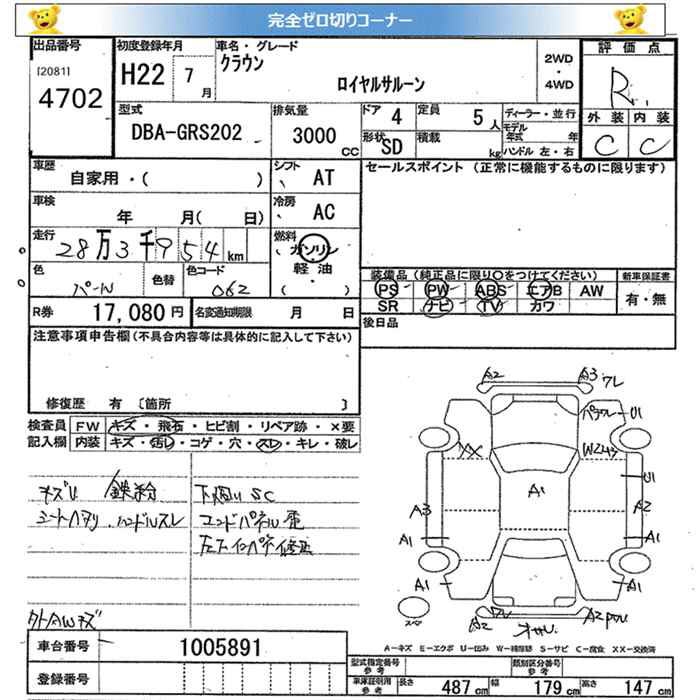 完全ゼロ切りコーナー
出品番号
[2081]
4702
初度登録年月
H22 7月
車名・グレード
クラウン
ロイヤルサルーン
2WD
・
4WD
評価点
R
外装 内装
C C
型式
DBA-GRS202
排気量
3000 CC
ドア 4
定員 5人
形状 SD
積載 kg
ディーラー・並行
モデル年式 年
ハンドル 左・右
車歴
自家用・( )
シフト AT
セールスポイント (正常に機能するものに限ります)
車検
年 月( 日)
冷房 AC
走行
28万3千954km
燃料
ガソリン
軽油
( )
色
パール
色替
色コード
062
装備品 (純正品に限り○をつけてください)
PS PW ABS エアB AW
SR ナビ TV カワ
新車保証書
有・無
R券 17,080円
名変通知期限 月 日
後日品
注意事項申告欄 (不具合内容等は具体的に記入して下さい)
修復歴 有 [箇所 ]
検査員記入欄
FW キズ・飛石・ヒビ割・リペア跡・×要
内装 キズ・汚レ・コゲ・穴・スレ・キレ・破レ
キズU 鉄粉
シートヘタリ、ハンドルスレ
下廻り SC
エンドパネル
外AWキズ
A2
A3 ワレ
U1
XX
A1
U1
A3
A2
A1
A1
A1
A1
スペア
A2
A2
A-キズ E-エクボ U-凹み W-補修跡 S-サビ C-腐食 XX-交換済
車台番号 1005891
登録番号
型式指定番号 参考
類別区分番号 参考
車庫証明用 参考
長さ 487cm
幅 179cm
高さ 147cm